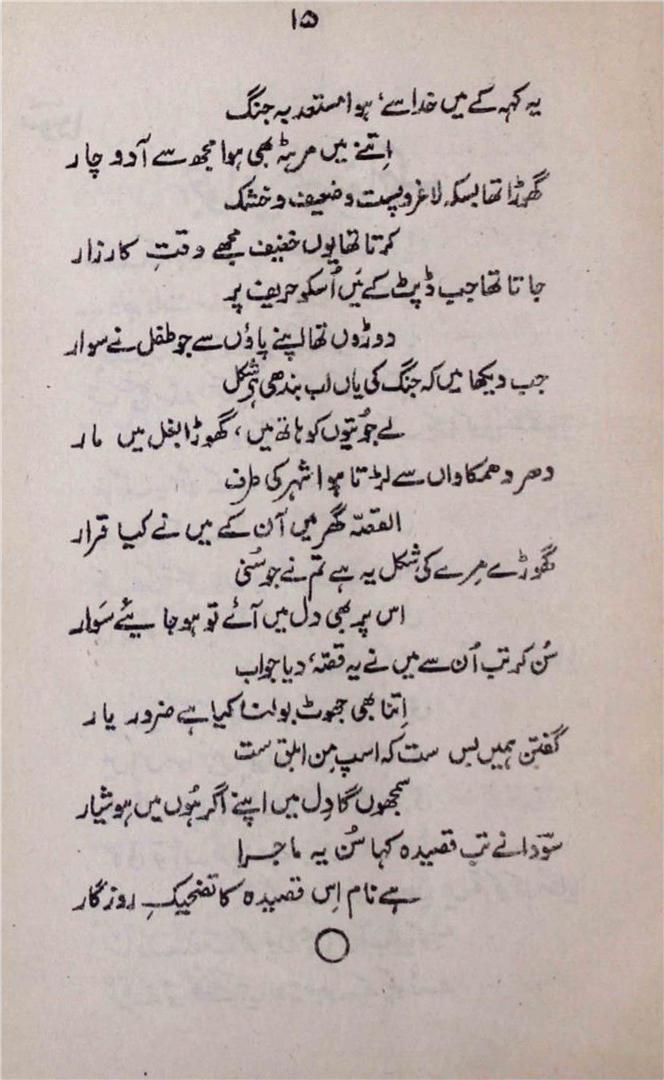 ۱۵
یہ کہہ کے میں خدا سے، ہوا مستعد بہ جنگ
اِتنے میں مرہٹہ بھی ہوا مجھ سے آ دو چار
گھوڑا تھا بسکہ لاغر و پست و ضعیف و خشک
کرتا تھا یوں خفیف مجھے وقتِ کارزار
جاتا تھا جب ڈپٹ کے مَیں اُسکو حریف پر
دوڑوں تھا اپنے پاؤں سے جوں طفل نے سوار
جب دیکھا میں کہ جنگ کی یاں اب بندھی ہے شکل
لے جُوتیوں کو ہاتھ میں، گھوڑا بغل میں مار
دھر دھمکا واں سے لڑتا ہوا شہر کی طرف
القصّہ گھر میں آن کے میں نے کیا قرار
گھوڑے مِرے کی شکل یہ ہے تم نے جو سُنی
اس پر بھی دل میں آئے تو ہو جایئے سَوار
سُن کر تب اُن سے میں نے یہ قصّہ، دیا جواب
اِتنا بھی جھوٹ بولنا کیا ہے ضرور یار
گفتن ہمیں بس ست کہ اسپِ من ابلق ست
سمجھوں گا دِل میں اپنے اگر ہُوں میں ہوشیار
سوّدا نے تب قصیدہ کہا سُن یہ ماجرا
ہے نام اِس قصیدہ کا تضحیکِ روزگار